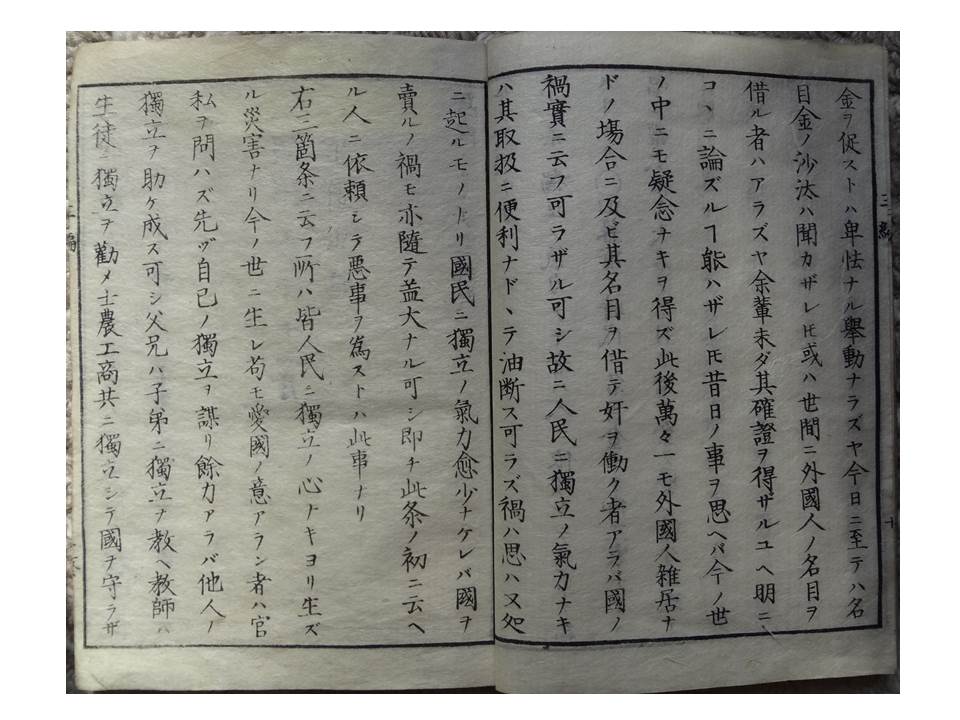 金ヲ促ストハ卑怯ナル擧動ナラズヤ今日ニ至テハ名
目金ノ沙汰ハ聞カザレㇳ゙モ或ハ世間ニ外國人ノ名目ヲ
借ル者ハアラズヤ余輩未ダ其確證ヲ得ザルユヘ明ニ
コヽニ論ズルヿ能ハザレㇳ゙モ昔日ノ事ヲ思ヘバ今ノ世
ノ中ニモ疑念ナキヲ得ズ此後萬々一モ外國人雑居ナ
ドノ塲合ニ及ビ其名目ヲ借テ奸ヲ働ク者アラバ國ノ
禍實ニ云フ可ラザル可シ故ニ人民ニ獨立ノ氣力ナキ
ハ其取扱ニ便利ナドヽテ油断ス可ラズ禍ハ思ハヌ処
ニ起ルモノナリ國民ニ獨立ノ氣力愈少ナケレバ國ヲ
賣ルノ禍モ亦隨テ益大ナル可シ即チ此条ノ初ニ云ヘ
ル人ニ依頼シテ悪事ヲ為ストハ此事ナリ
右三箇条ニ云フ所ハ皆人民ニ獨立ノ心ナキヨリ生ズ
ル災害ナリ今ノ世ニ生レ苟モ愛國ノ意アラン者ハ官
私ヲ問ハズ先ヅ自己ノ獨立ヲ謀リ餘力アラバ他人ノ
獨立ヲ助ケ成ス可シ父兄ハ子弟ニ獨立ヲ教ヘ教師ハ
生徒ニ獨立ヲ勸メ士農工商共ニ獨立シテ國ヲ守ラザ